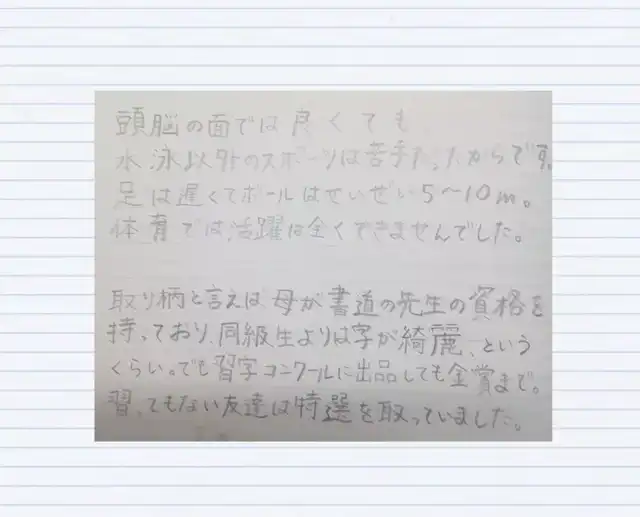 頭脳の面では良くても
水泳以外のスポーツは苦手だったからです。
足は遅くてボールはせいぜい5〜10m。
体育では活躍は全くできませんでした。
取り柄と言えば母が書道の先生の資格を
持っており、同級生よりは字が綺麗、という
くらい。でも習字コンクールに出品しても金賞まで。
習ってもない友達は特選を取っていました。